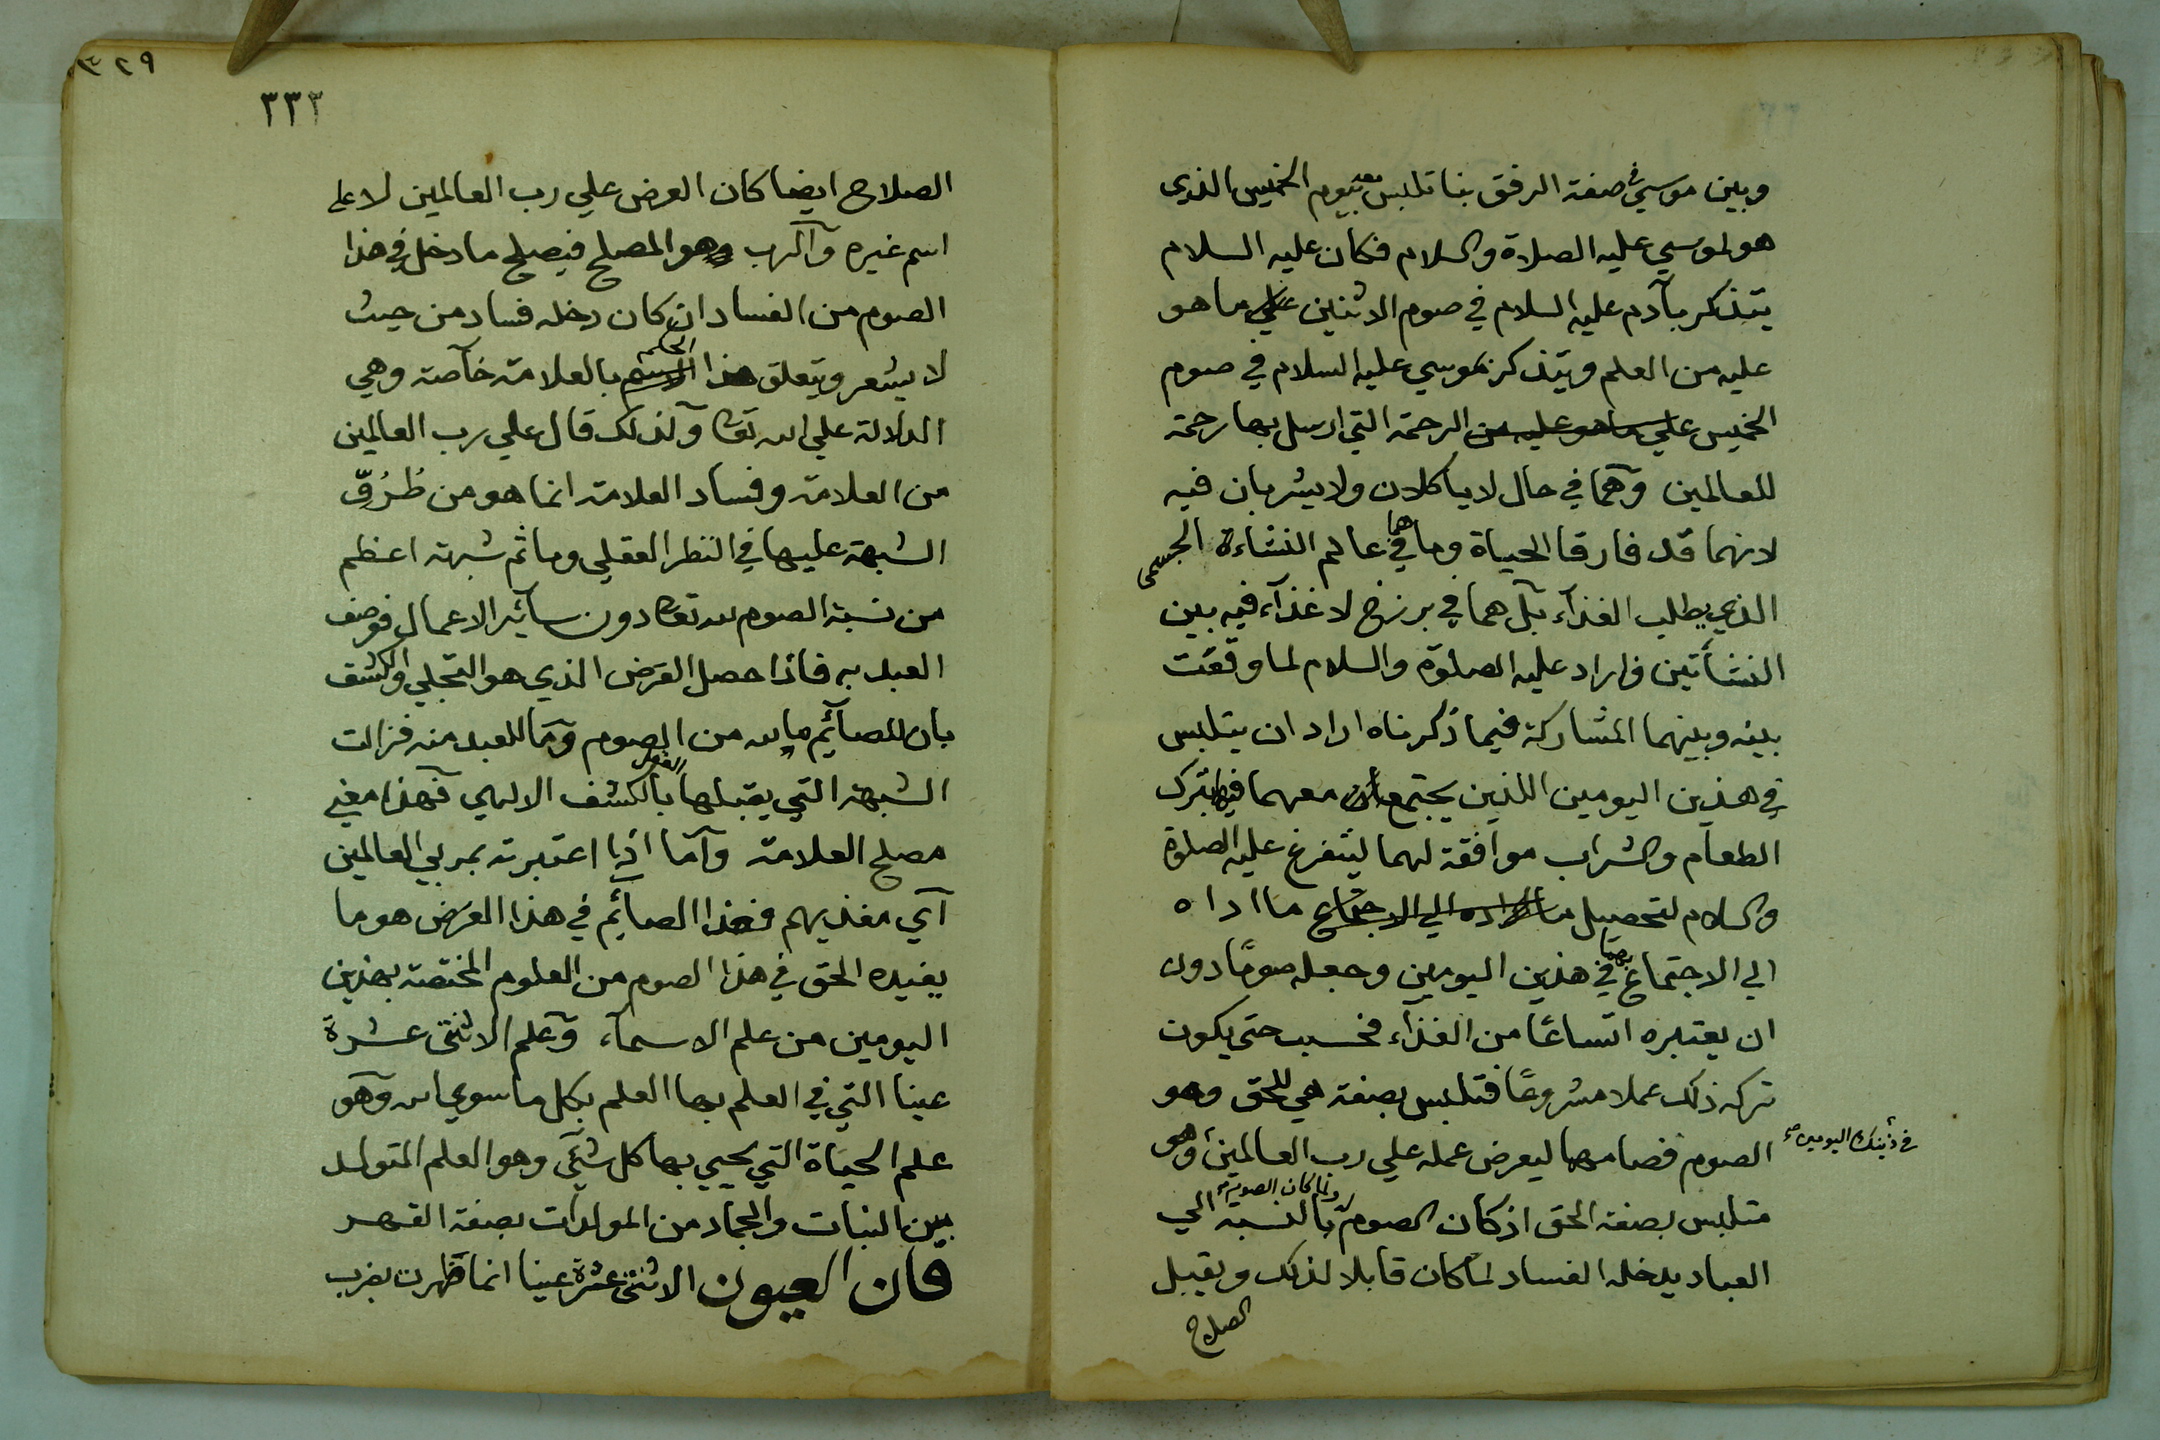 وبين موسي في صفة الرفق بنا تلبس معه بيوم الخميس الذي
هو لموسي عليه الصلاة والسلام فكان عليه السلام
يتذكر بآدم عليه السلام في صوم الاثنين علي ما هو
عليه من العلم ويتذكر بموسي عليه السلام في صوم
الخميس علي ما هو عليه من الرحمة التي ارسل بها رحمة
للعالمين وهما في حال لا ياكلان ولا يشربان فيه
لانهما قد فارقا الحياة وما هما في عالم النشاءة الجسمي
الذي يطلب الغذآء بل هما في برزخ لا غذآء فيه بين
النشأتين فاراد عليه الصلوة والسلام لما وقعت
بينه وبينهما المشاركة فيما ذكرناه اراد ان يتلبس
في هذين اليومين اللذين يجتمع معهما فيهما بترك
الطعام والشراب موافقة لهما ليتفرغ عليه الصلوة
والسلام لتحصيل ما اراده الي الاجتماع ما اداه
الي الاجتماع بهما في هذين اليومين وجعله صومًا دون
ان يعتبره اتساعًا من الغذآء فحسب حتى يكون
تركه ذلك عملا مشروعًا فتلبس بصفة هي للحق وهو
في ذينك اليومين صح
الصوم فصامهما ليعرض عمله علي رب العالمين وهو
متلبس بصفة الحق اذ كان الصوم له ولما كان الصوم بالنسبة الي
العباد يدخله الفساد لما كان قابلا لذلك ويقبل
الصلاح
٣٢٩
٣٣٣
الصلاح ايضا كان العرض علي رب العالمين لا علي
اسم غيره والرب وهو المصلح فيصلح ما دخل في هذا
الصوم من الفساد ان كان دخله فساد من حيث
لا يشعر ويتعلق هذا الاسم بالعلامة خآصة وهي
الدلالة علي الله تعالى ولذلك قال علي رب العالمين
من العلامة وفساد العلامة انما هو من طُرُوّ
الشبهة عليها في النظر العقلي وما ثم شبهة اعظم
من نسبة الصوم لله تعالى دون سآئر الاعمال فوصف
العبد به فاذا حصل العرض الذي هو التجلي والكشف
بان للصآئم ما لله من الصوم وما للعبد منه فزالت
الشبهة التي يقبلها العقل بالكشف الالهي فهذا معني
مصلح العلامة وآما اذا اعتبرته بمربي العالمين
آي مغذيهم فغذا الصائم في هذا العرض هو ما
يفيده الحق في هذا الصوم من العلوم المختصة بهذين
اليومين من علم الاسمآء وعلم الاثنتى عشرة
عينا التي في العلم بها العلم بكل ما سوي الله وهو
علم الحياة التي يحيي بها كل شئي وهو العلم المتولد
بين النبات والجماد من المولدات بصفة القهر
فان العيون الاثنتى عشرة عينا انما ظهرت بضرب